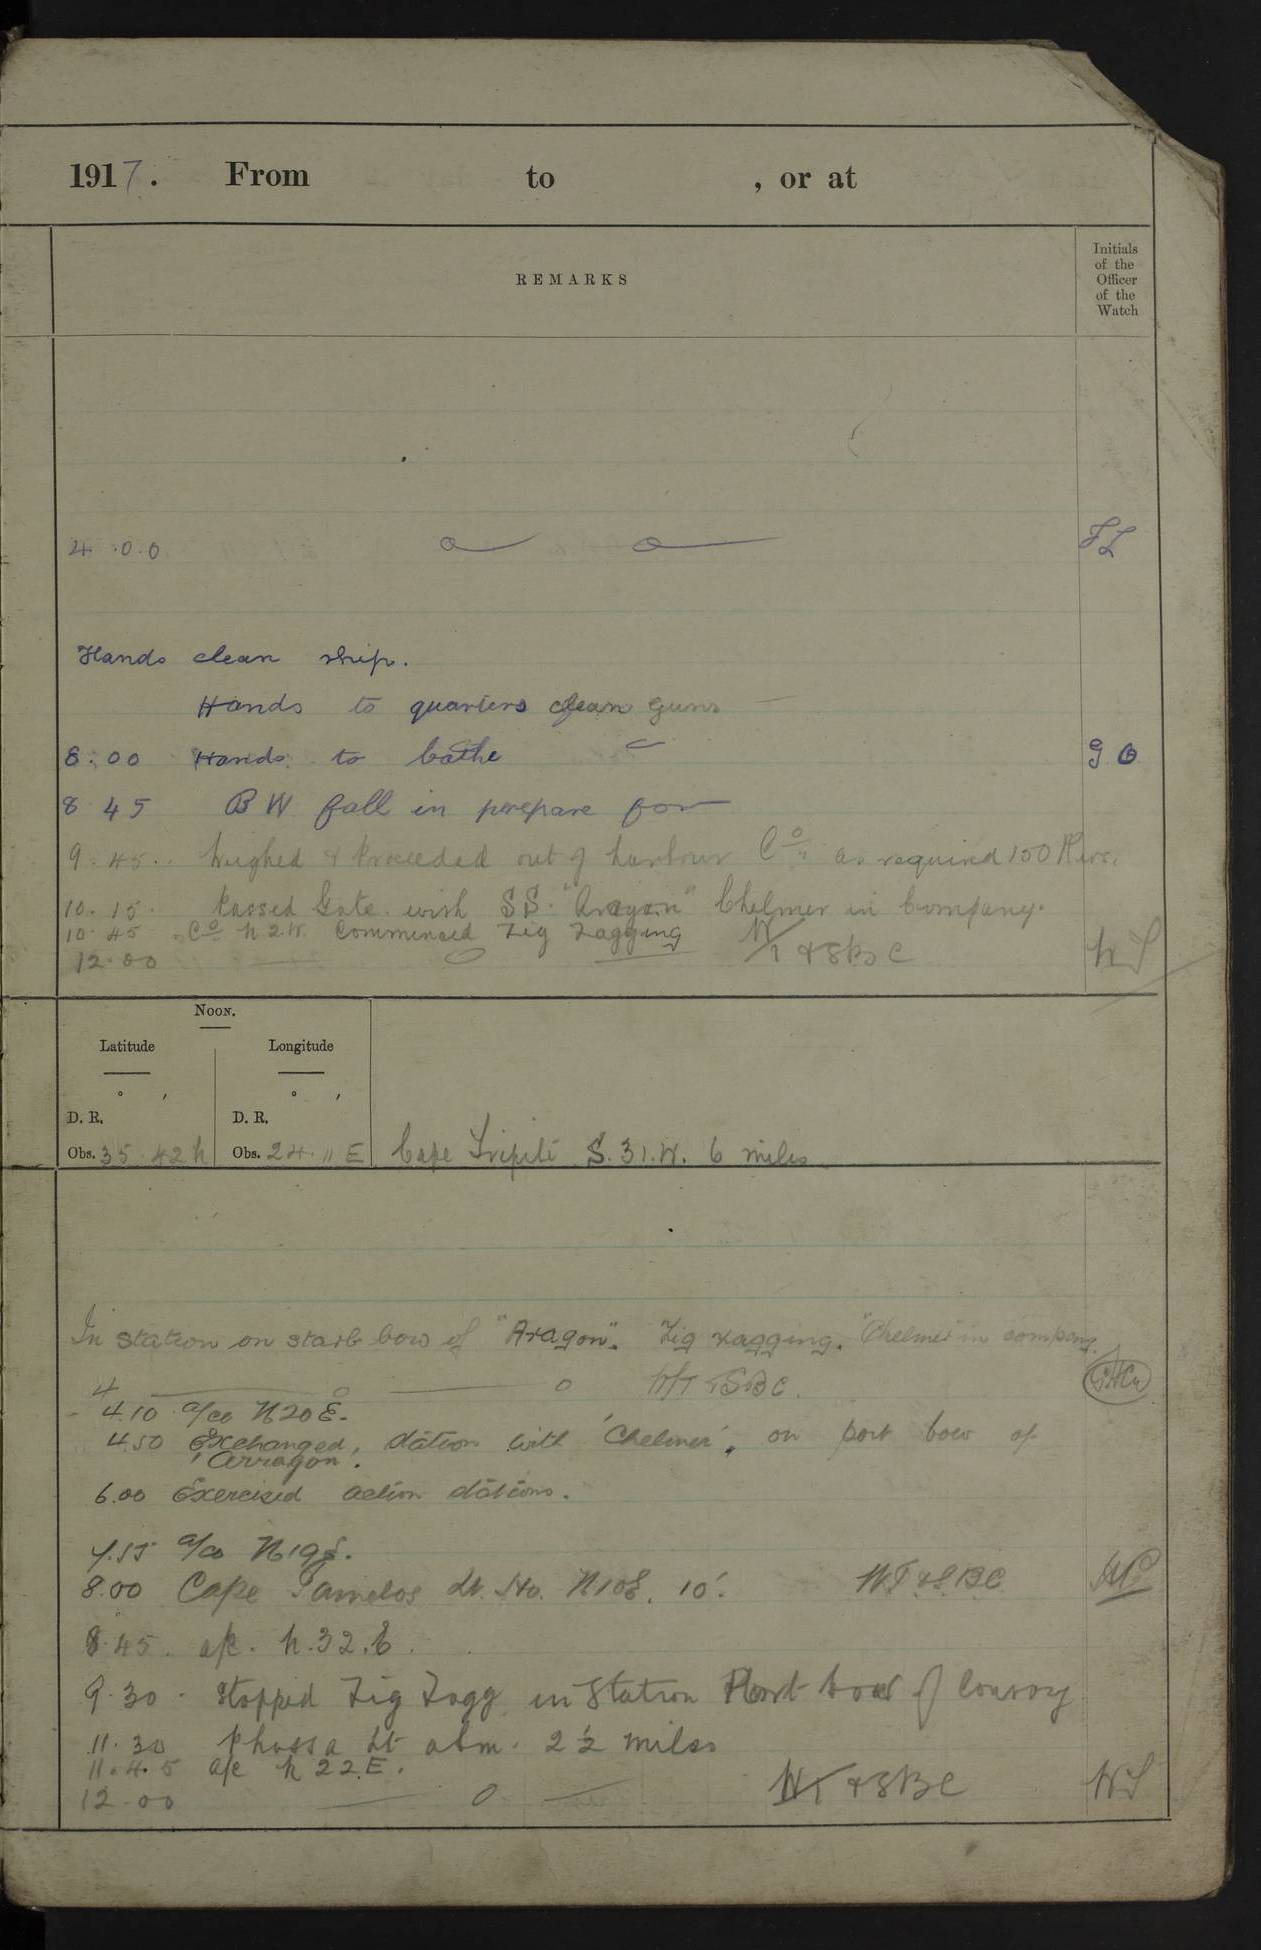 1917. From to , or at
REMARKS
Initials
of the
Officer
of the
Watch
4.0.0
Hands clean ship.
Hands to quarters clean guns
8:00 Hands to bathe G O
8 45 B W fall in prepare for
9.45.. Weighed & Proceeded out of harbour Co as required 150 Revs.
10.15. Passed Gate with SS. "Aragon" Chelmer in Company.
10.45 Co N 2.W. Commenced Zig Zagging W/T & SBC
12.00
NOON.
Latitude Longitude
° ′ ° ′
D. R. D. R.
Obs. 35 42 N Obs. 24 11 E Cape Tripiti S.31.W. 6 miles
In station on starb bow of "Aragon". Zig zagging. "Chelmer" in company.
4 o o W/T & SBC.
4.10 a/co N20E.
4.50 Exchanged, station with 'Chelmer', on port bow of
'Arragon'.
6.00 Exercised action stations.
7.55 a/co N19E.
8.00 Cape Tamelos Lt. Ho. N10E. 10'. WT & SBC
8.45. a/c. N.32.E.
9.30. Stopped Zig Zagg in Station Port bow of Convoy
11.30 Phassa Lt abm. 2½ miles
11.45 a/c N 22 E.
12.00 0 W/T & SBC